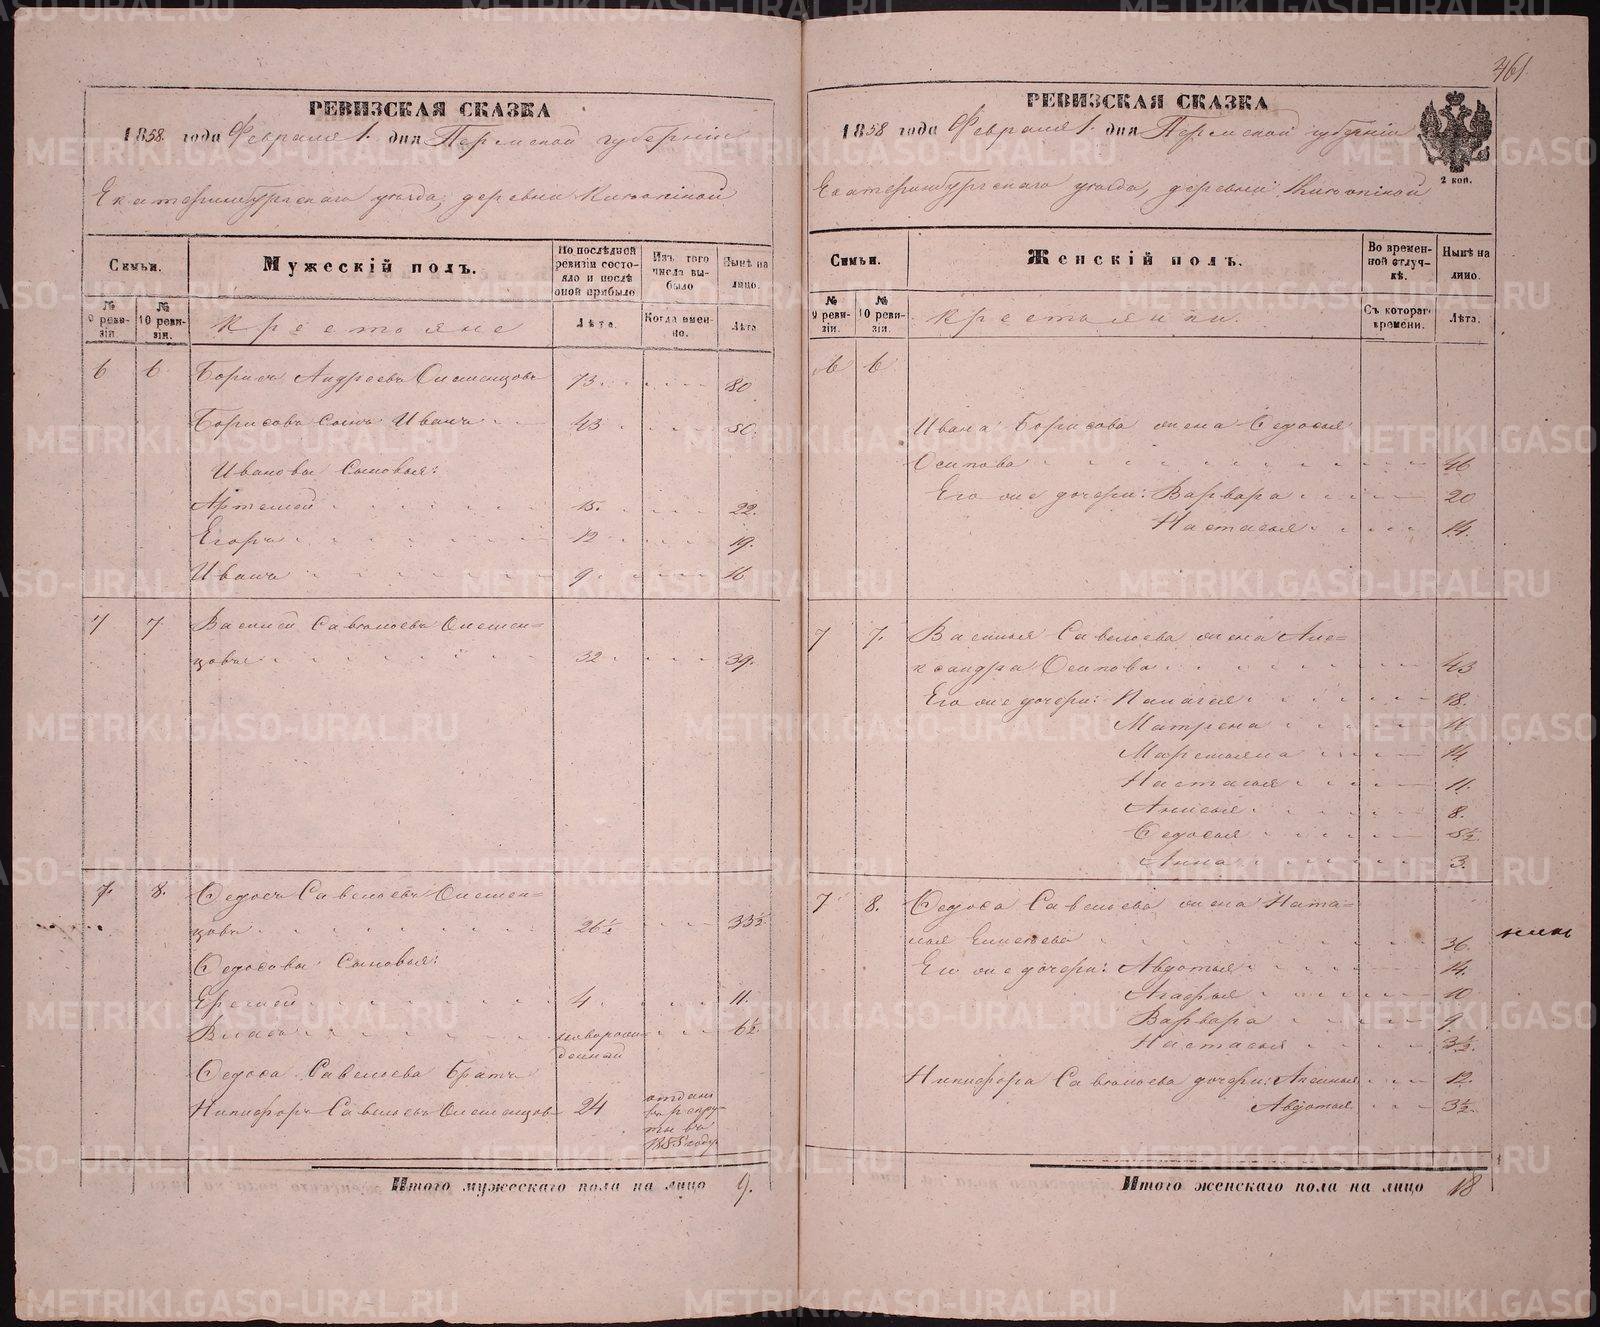 461
РЕВИЗСКАЯ СКАЗКА
1858. года Февраля 1. дня Пермской губернiи
Екатеринбургскаго уѣзда, деревни
Семьи.
Мужескiй полъ.
По послѣдней ревизiи состояло и послѣ оной прибыло
Изъ того числа выбыло
Нынѣ на лицо.
№ 9 ревизiи.
№ 10 ревизiи.
Крестьяне
Лѣта.
Когда именно.
Лѣта
6 6 Борисъ Андреевъ 73 80
Борисовъ сынъ Иванъ 43 50.
Ивановы сыновья:
Артемей 15. 22.
Егоръ 12 19.
Иванъ 9 16
7 7. Василей Савельевъ
цовъ 32 39.
7. 8. Федосъ Савельевъ
цовъ 26½ 33½
Федосовы сыновья:
Еремей 4 11.
Власъ новорожденный 6½
Федоса Савельева братъ
Никифоръ Савельевъ 24 отданъ въ рекруты въ 1855 году
Итого мужескаго пола на лицо 9.
РЕВИЗСКАЯ СКАЗКА
1858 года Февраля 1. дня Пермской губернiи
2 коп.
Екатеринбургскаго уѣзда, деревни
Семьи.
Женскiй полъ.
Во временной отлучкѣ.
Нынѣ на лицо.
№ 9 ревизiи.
№ 10 ревизiи.
Крестьянки.
Съ котораго времени.
Лѣта.
6 6
Ивана Борисова жена Федосья
Осипова 46
Его же дочери: Варвара 20
Настасья 14.
7 7. Василья Савельева жена Але=
ксандра Осипова 43
Его же дочери: Палагея 18.
Матрена 16
Маремьяна 14
Настасья 11.
Анисья 8.
Федосья 5½
Анна 3.
7 8. Федоса Савельева жена Ната=
лья Елисеева 36.
Его же дочери: Авдотья 14.
Агафья 10
Варвара 9
Настасья 3½.
Никифора Савельева дочери: Аксинья 12.
Авдотья 3½.
Итого женскаго пола на лицо 18
METRIKI.GASO-URAL.RU